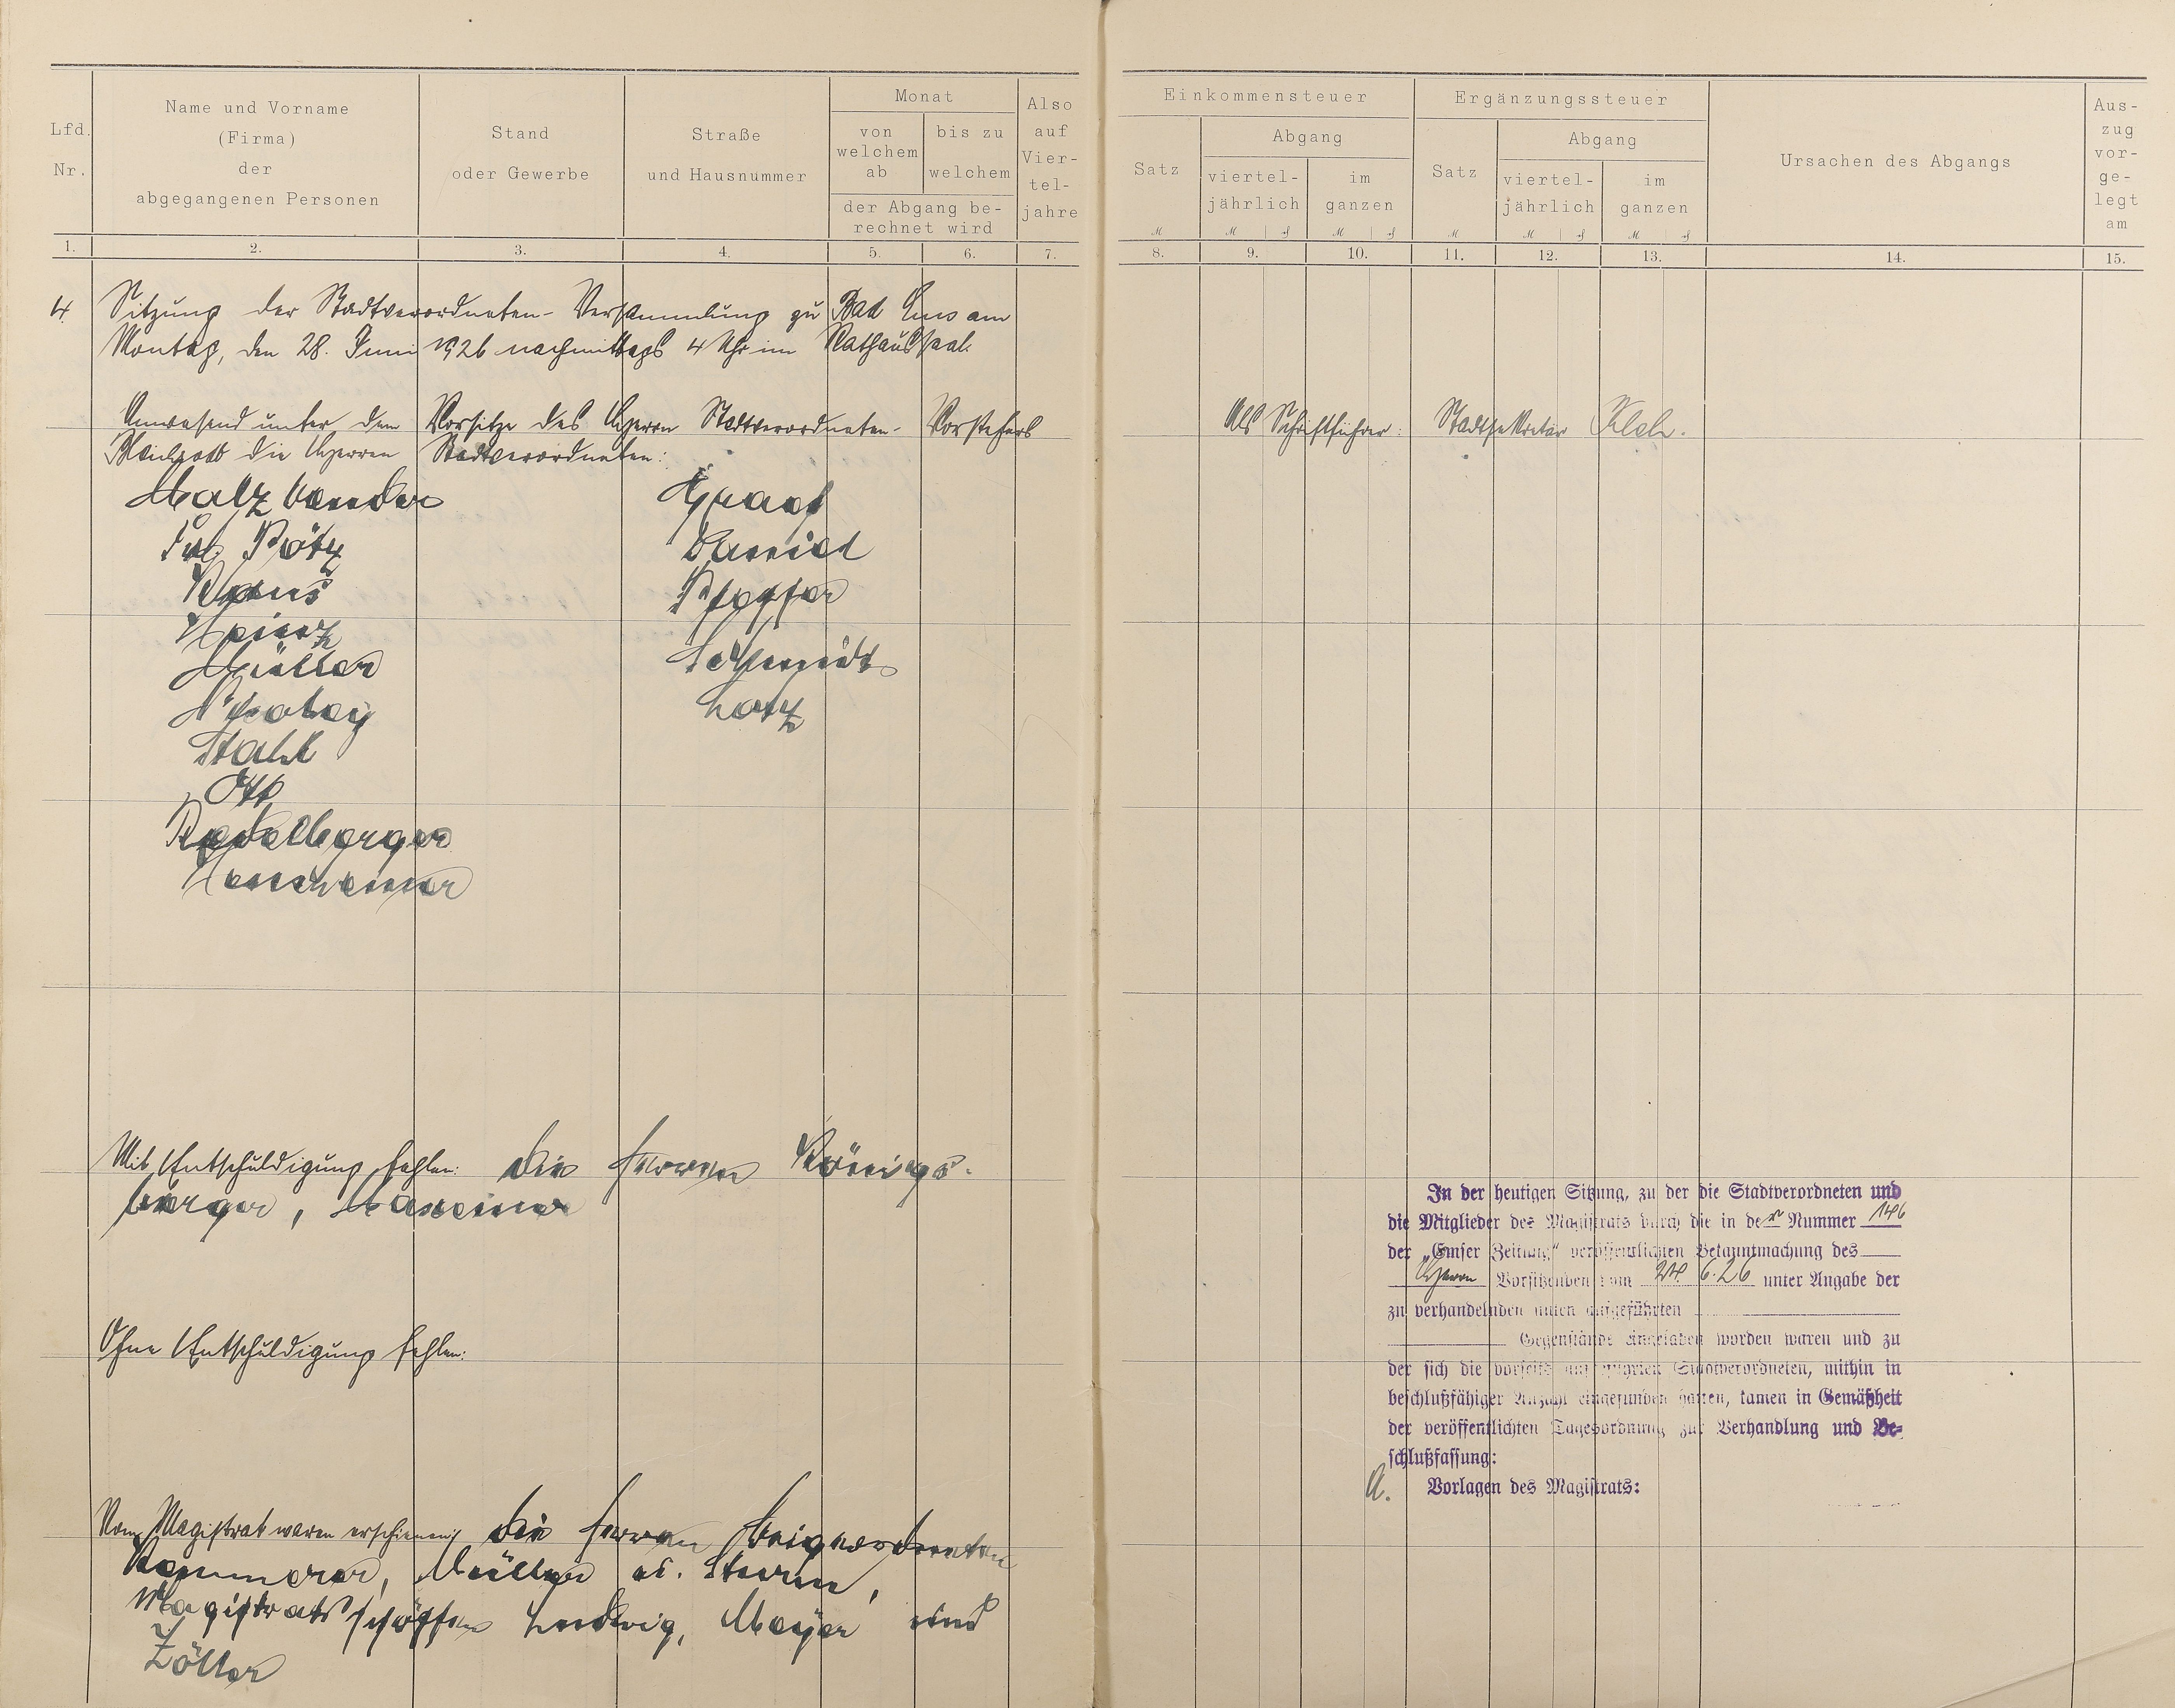 Lfd. Nr.
Name und Vorname
(Firma)
der
abgegangenen Personen
Stand
oder Gewerbe
Straße
und Hausnummer
Monat
von welchem ab
bis zu welchem
der Abgang be-
rechnet wird
Also auf Vier-tel-jahre
1. 2. 3. 4. 5. 6. 7.
4. Sitzung der Stadtverordneten-Versammlung zu Bad Ems am
Montag, den 28. Juni 1926 nachmittags 4 Uhr im Rathaussaal.
Anwesend unter dem Vorsitze des Herrn Stadtverordneten-Vorstehers
die Herren Stadtverordneten:
Malzbender
Pötz
Heinz
Müller
Stahl
Ott
Graef
Daniel
Pfeffer
Schmidt
Lotz
Mit Entschuldigung fehlen: die Herren Königs-
berger,
Ohne Entschuldigung fehlen:
Vom Magistrat waren erschienen: die Herren Beigeordneten
Kemmerer, Müller u. Sturm,
Magistratsschöffen Ludwig, Meyer und
Zöller
Einkommensteuer
Satz
Abgang
viertel-jährlich
im ganzen
Ergänzungssteuer
Satz
Abgang
viertel-jährlich
im ganzen
Ursachen des Abgangs
Aus-zug vor-ge-legt am
M M ₰ M ₰ M M ₰ M ₰
8. 9. 10. 11. 12. 13. 14. 15.
Als Schriftführer: Stadtsekretär
In der heutigen Sitzung, zu der die Stadtverordneten und
die Mitglieder des Magistrats durch die in der Nummer 146
der „Emser Zeitung" veröffentlichten Bekanntmachung des
Herrn Vorsitzenden vom 24. 6. 26 unter Angabe der
zu verhandelnden unten aufgeführten
Gegenstände eingeladen worden waren und zu
der sich die vorseits aufgeführten Stadtverordneten, mithin in
beschlußfähiger Anzahl eingefunden hatten, kamen in Gemäßheit
der veröffentlichten Tagesordnung zur Verhandlung und Be-
schlußfassung:
A. Vorlagen des Magistrats: